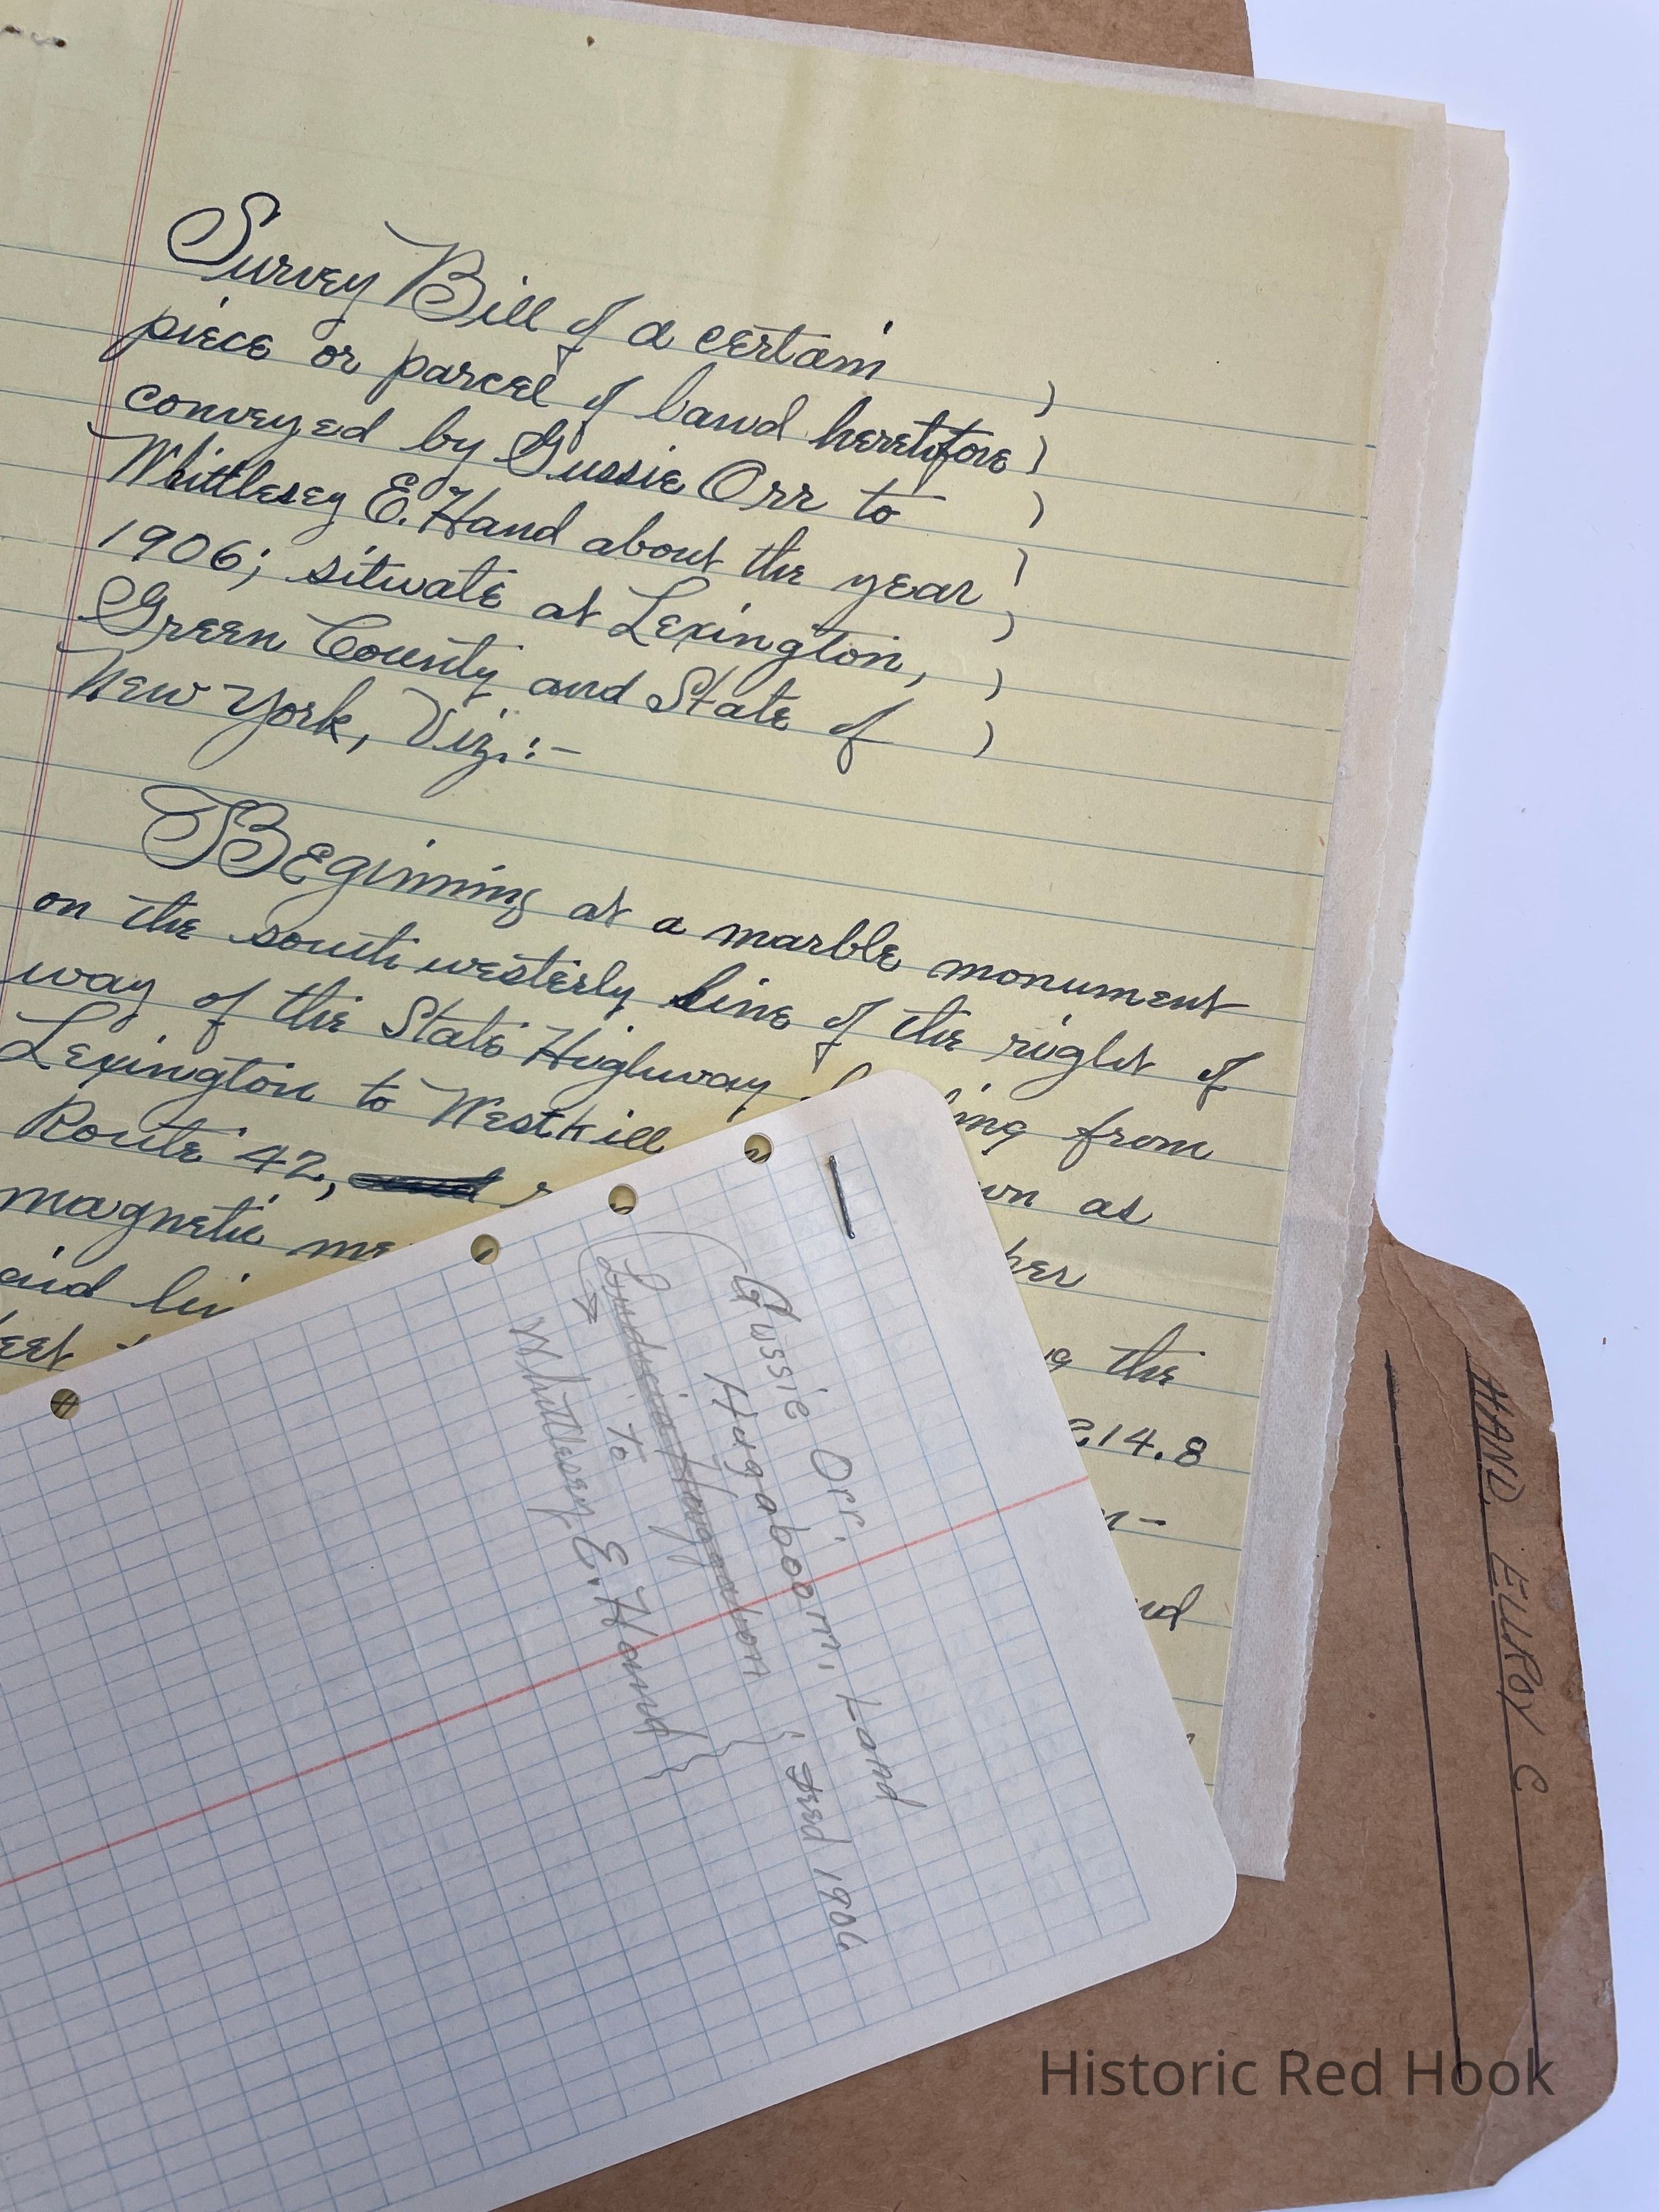 Survey Bill of a certain )
piece or parcel of land heretofore )
conveyed by Gussie Orr to )
Whittlesey E. Hand about the year )
1906; situate at Lexington, )
Green County and State of )
New York, Viz.:- )
Beginning at a marble monument
on the south westerly line of the right of
way of the State Highway ing from
Lexington to Westkill wn as
Route 42, her
magnetic the
aid lin 214.8
eet
nd
Gussie Orr, Land
Hugaboom, { Deed 1906
to
Whittlesey E. Hand }
HAND ELLROY C
Historic Red Hook